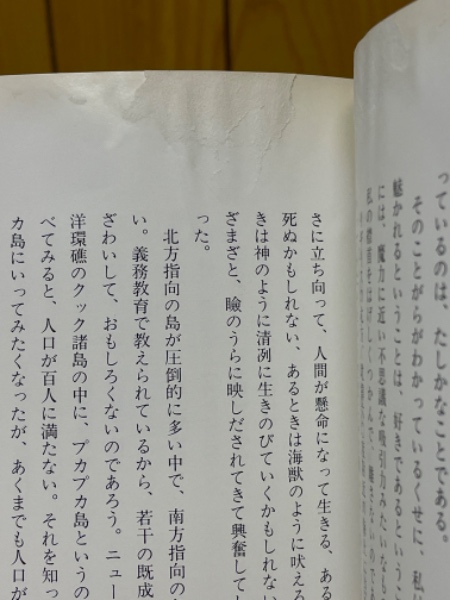 っているのは、たしかなことである。
そのことがらがわかっているくせに、私
魅かれるということは、好きであるというこ
には、魔力に近い不思議な吸引力みたいなも
さに立ち向って、人間が懸命になって生きる、ある
死ぬかもしれない、あるときは海獣のように吠える
きは神のように清冽に生きのびていくかもしれない
ざまざと、瞼のうらに映しだされてきて興奮してし
った。
北方指向の島が圧倒的に多い中で、南方指向の
い。義務教育で教えられているから、若干の既成
ざわいして、おもしろくないのであろう。ニュー
洋環礁のクック諸島の中に、プカプカ島というの
べてみると、人口が百人に満たない。それを知っ
カ島にいってみたくなったが、あくまでも人口が